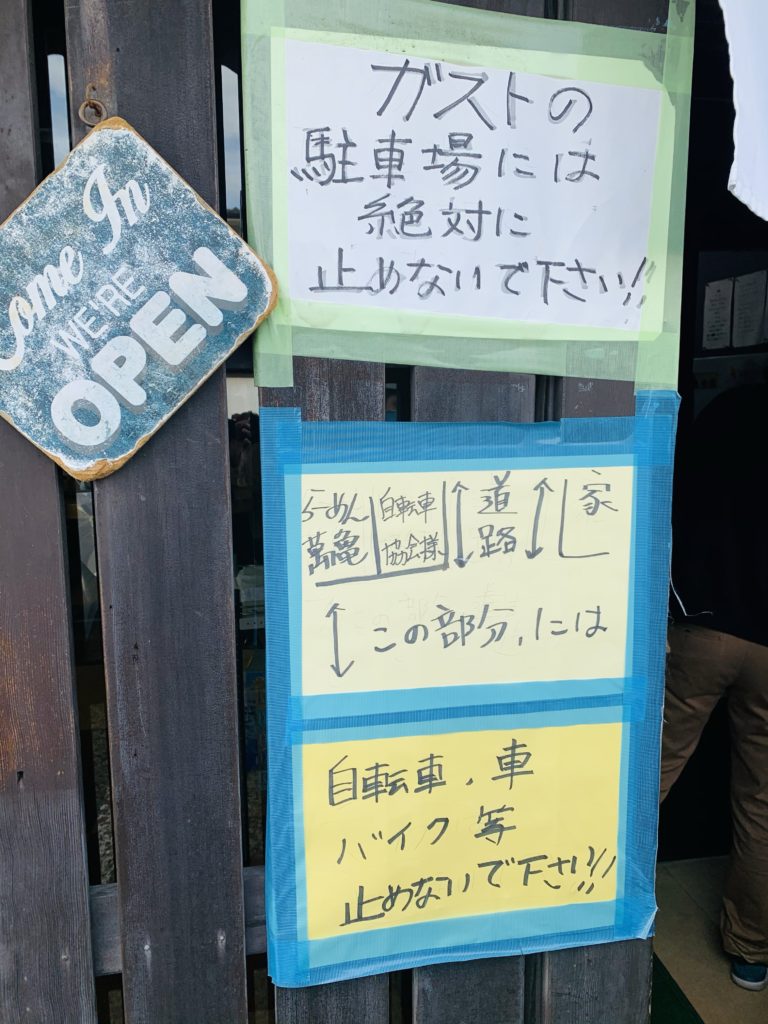 Come In
WE'RE
OPEN
ガストの
駐車場には
絶対に
止めないで下さい!!
らーめん
萬亀
自転車
協会様
道
路
家
この部分、には
自転車、車
バイク等
止めないで下さい!!